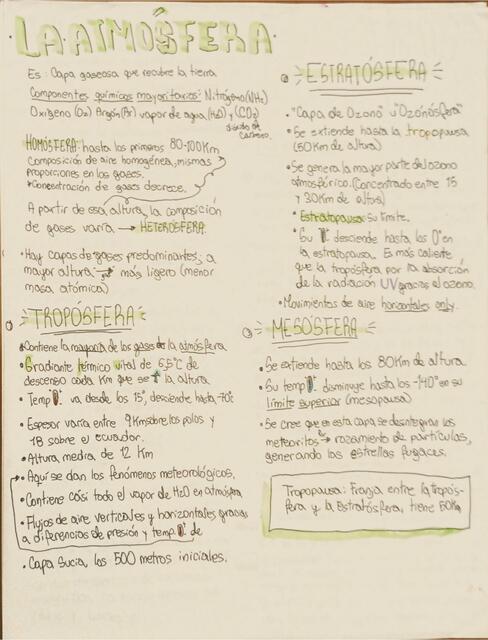 LA ATMÓSFERA
Es: Capa gaseosa que recubre la tierra
Componentes químicos mayoritarios: Nitrógeno (NH2)
Oxígeno (O2) Argón (Ar) vapor de agua (H2O) y (CO2)
dióxido de carbono.
HOMÓSFERA: hasta los primeros 80-100Km
Composición de aire homogénea, mismas
proporciones en los gases.
*Concentración de gases decrece.
A partir de esa altura, la composición
de gases varía → HETEROSFERA.
• Hay capas de gases predominantes, a
mayor altura → más ligero (menor
masa atómica)
TROPÓSFERA
• Contiene la mayoría de los gases de la atmósfera
• Gradiante térmico vital de 6,5°C de
descenso cada Km que se ↑ la altura
• Temp va desde los 15°, desciende hasta -70°C
• Espesor varía entre 9Km sobre los polos y
18 sobre el ecuador.
• Altura media de 12 Km
• Aquí se dan los fenómenos meteorológicos.
• Contiene casi todo el vapor de H2O en atmósfera
• Flujos de aire verticales y horizontales gracias
a diferencias de presión y temp de
• Capa Sucia, los 500 metros iniciales.
ESTRATÓSFERA
• "Capa de Ozono" u "Ozonósfera"
• Se extiende hasta la tropopausa
(50Km de altura)
• Se genera la mayor parte del ozono
atmosférico. (Concentrado entre 15
y 30Km de altura)
• Estratopausa: su límite.
• Su T° desciende hasta los 0° en
la estratopausa. Es más caliente
que la tropósfera por la absorción
de la radiación UV gracias al ozono.
• Movimientos de aire horizontales only.
MESÓSFERA
• Se extiende hasta los 80Km de altura.
• Su temp disminuye hasta los -140° en su
límite superior (mesopausa)
• Se cree que en esta capa se desintegran los
meteoritos → rozamiento de partículas,
generando las estrellas fugaces.
Tropopausa: Franja entre la tropós-
fera y la Estratósfera, tiene 50Km